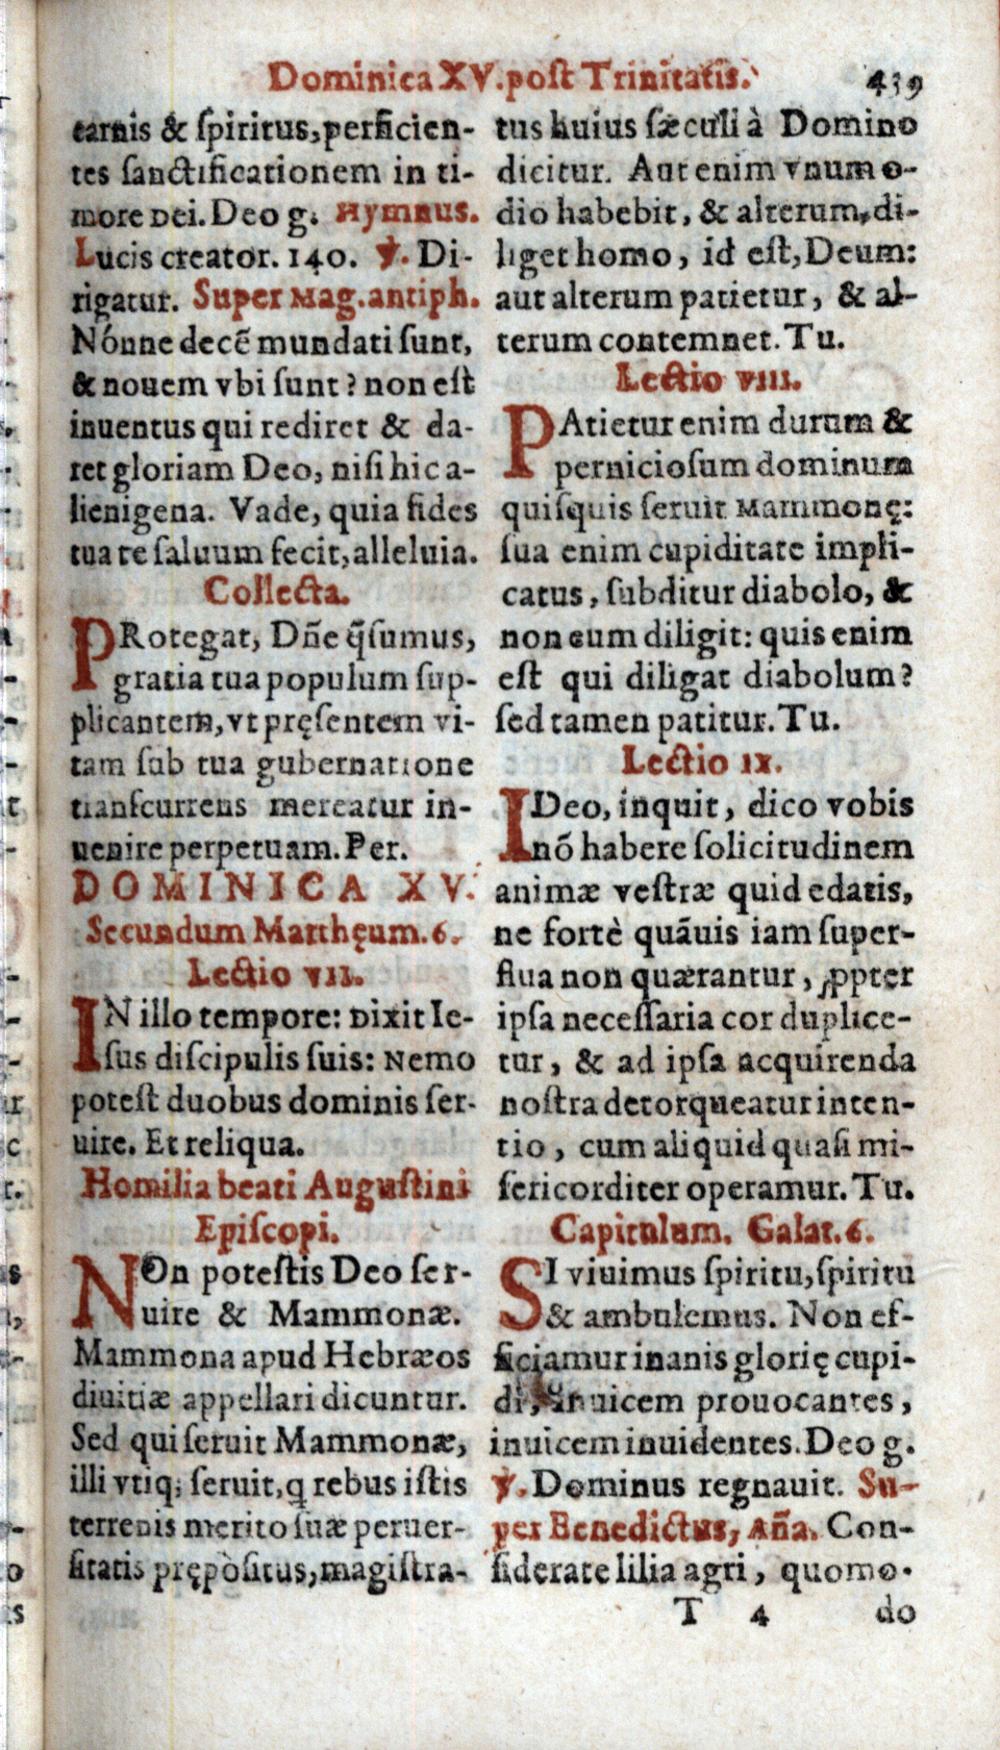 Dominica XV. post Trinitatis. 439
carnis & spiritus, perficien-
tes sanctificationem in ti-
more Dei. Deo g. Hymnus.
Lucis creator. 140. ℣. Di-
rigatur. Super Mag. antiph.
Nónne decē mundati sunt,
& nouem vbi sunt? non est
inuentus qui rediret & da-
ret gloriam Deo, nisi hic a-
lienigena. Vade, quia fides
tua te saluum fecit, alleluia.
Collecta.
PRotegat, Dñe q̃sumus,
gratia tua populum sup-
plicantem, vt pręsentem vi-
tam sub tua gubernatione
transcurrens mereatur in-
uenire perpetuam. Per.
DOMINICA XV.
Secundum Matthęum. 6.
Lectio VII.
IN illo tempore: Dixit Ie-
sus discipulis suis: Nemo
potest duobus dominis ser-
uire. Et reliqua.
Homilia beati Augustini
Episcopi.
NOn potestis Deo ser-
uire & Mammonæ.
Mammona apud Hebræos
diuitiæ appellari dicuntur.
Sed qui seruit Mammonæ,
illi vtiq; seruit, q rebus istis
terrenis merito suæ peruer-
sitatis prępòsitus, magistra-
tus huius sæculi à Domino
dicitur. Aut enim vnum o-
dio habebit, & alterum, di-
liget homo, id est, Deum:
aut alterum patietur, & al-
terum contemnet. Tu.
Lectio VIII.
PAtietur enim durum &
perniciosum dominum
quisquis seruit Mammonę:
sua enim cupiditate impli-
catus, subditur diabolo, &
non eum diligit: quis enim
est qui diligat diabolum?
sed tamen patitur. Tu.
Lectio IX.
IDeo, inquit, dico vobis
nō habere solicitudinem
animæ vestræ quid edatis,
ne fortè quāuis iam super-
flua non quærantur, ꝓpter
ipsa necessaria cor duplice-
tur, & ad ipsa acquirenda
nostra detorqueatur inten-
tio, cum aliquid quasi mi-
sericorditer operamur. Tu.
Capitulum. Galat. 6.
SI viuimus spiritu, spiritu
& ambulemus. Non ef-
ficiamur inanis glorię cupi-
di, inuicem prouocantes,
inuicem inuidentes. Deo g.
℣. Dominus regnauit. Su-
per Benedictus, Aña. Con-
siderate lilia agri, quomo-
T 4 do